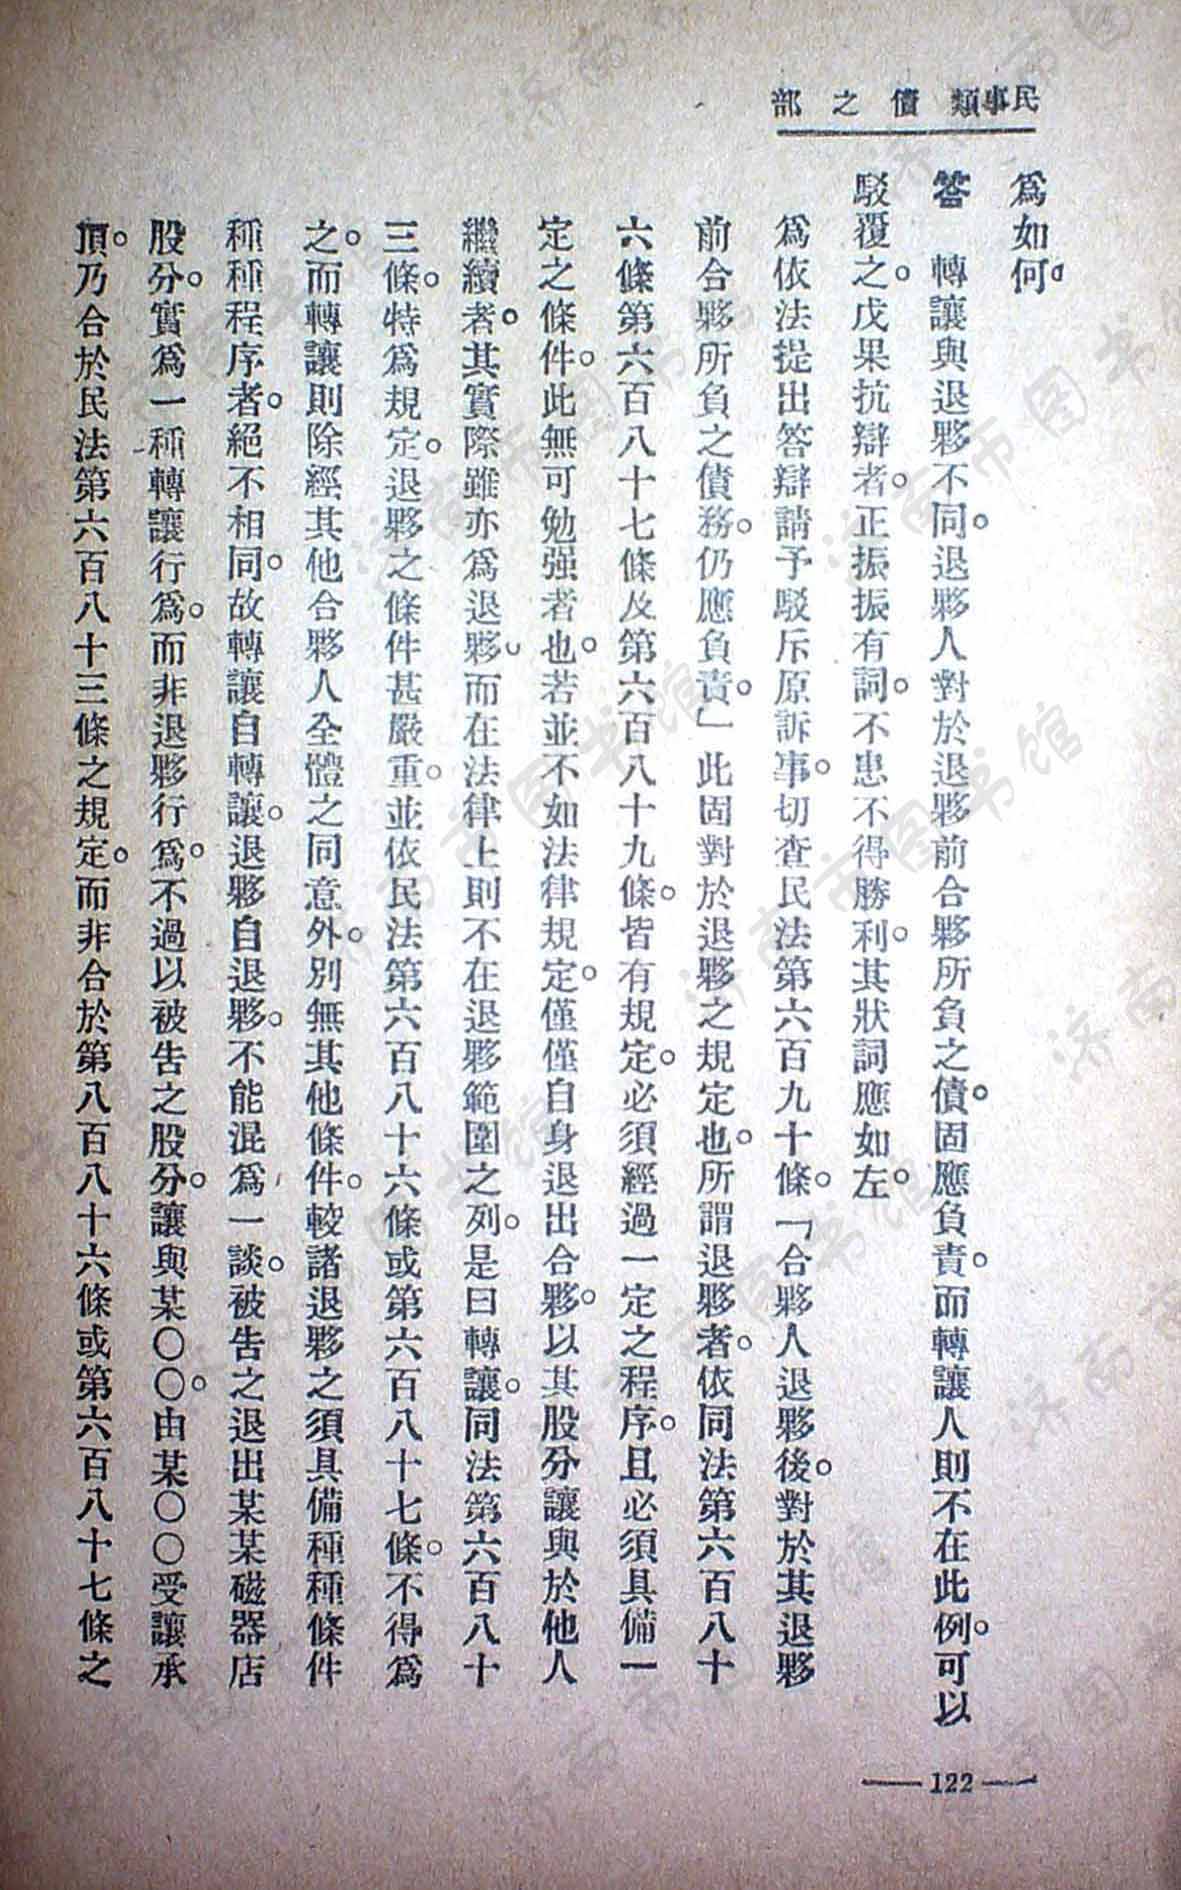 民事類債之部
爲如何。
答　轉讓與退夥不同。退夥人對於退夥前合夥所負之債。固應負責。而轉讓人則不在此例。可以
駁覆之。戊果抗辯者。正振振有詞。不患不得勝利。其狀詞應如左。
爲依法提出答辯請予駁斥原訴事。切查民法第六百九十條。「合夥人退夥後。對於其退夥
前合夥所負之債務。仍應負責。」此固對於退夥之規定也。所謂退夥者。依同法第六百八十
六條第六百八十七條及第六百八十九條。皆有規定。必須經過一定之程序。且必須具備一
定之條件。此無可勉强者也。若並不如法律規定。僅僅自身退出合夥。以其股分讓與於他人
繼續者。其實際雖亦爲退夥。而在法律上則不在退夥範圍之列。是曰轉讓。同法第六百八十
三條。特爲規定。退夥之條件甚嚴重。並依民法第六百八十六條或第六百八十七條。不得爲
之。而轉讓則除經其他合夥人全體之同意外。別無其他條件。較諸退夥之須具備種種條件
種種程序者。絕不相同。故轉讓自轉讓。退夥自退夥。不能混爲一談。被告之退出某某磁器店
股分。實爲一種轉讓行爲。而非退夥行爲。不過以被告之股分。讓與某〇〇。由某〇〇受讓承
頂。乃合於民法第六百八十三條之規定。而非合於第八百八十六條或第六百八十七條之
— 122 —
济南市图书馆